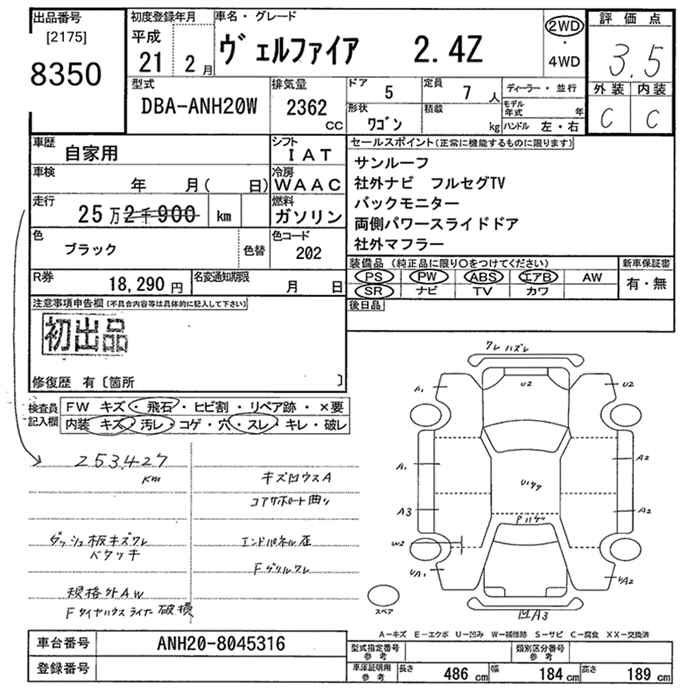 出品番号 初度登録年月 車名・グレード 評価点
[2175] 平成 ヴェルファイア 2.4Z 2WD ・ 4WD 3.5
8350 21 2月
型式 排気量 ドア 5 定員 7人 ディーラー・並行 外装 内装
DBA-ANH20W 2362 CC 形状 ワゴン 積載 kg モデル年式 年 C C
ハンドル 左・右
車歴 自家用 シフト IAT セールスポイント(正常に機能するものに限ります)
車検 年 月( 日) 冷房 WAAC サンルーフ
走行 25万2千900 km 燃料 ガソリン 社外ナビ フルセグTV
バックモニター
色 ブラック 色替 色コード 202 両側パワースライドドア
社外マフラー
R券 18,290円 名変通知期限 月 日 装備品(純正品に限り○をつけてください) 新車保証書
PS PW ABS エアB AW 有・無
SR ナビ TV カワ
注意事項申告欄(不具合内容等は具体的に記入して下さい) 後日品
初出品
修復歴 有〔箇所 〕
検査員記入欄 FW キズ・飛石・ヒビ割・リペア跡・×要
内装 キズ・汚レ・コゲ・穴・スレ・キレ・破レ
253,427 KM
キズ凹ウスA
コアサポート曲り
ダッシュ板キズワレ
ベタツキ
エンドパネル歪
Fグリルワレ
規格外AW
Fタイヤハウスライナー破損
ワレ ハズレ
A1 U2 U2
A1 A2
A3 A1
W2
UA1 UA2
凹A3
スペア
A-キズ E-エクボ U-凹み W-補修跡 S-サビ C-腐食 XX-交換済
車台番号 ANH20-8045316 型式指定番号 参考 類別区分番号 参考
登録番号 車庫証明用 参考 長さ 486 cm 幅 184 cm 高さ 189 cm